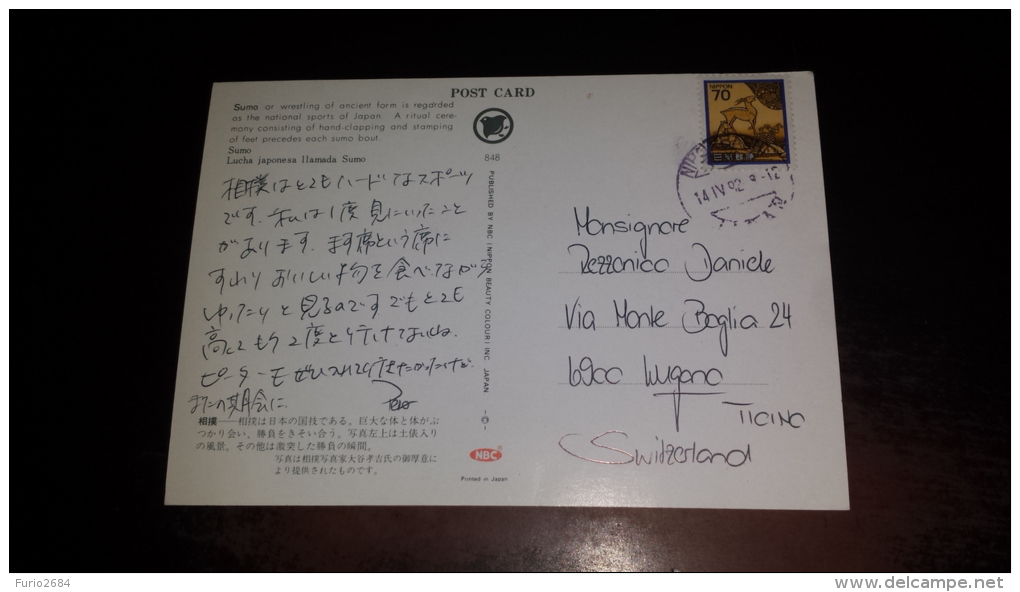 POST CARD
Sumo or wrestling of ancient form is regarded
as the national sports of Japan. A ritual cere-
mony consisting of hand-clapping and stamping
of feet precedes each sumo bout.
Sumo
Lucha japonesa llamada Sumo
848
相撲はとてもハードなスポーツ
です。私は1度見にいったこと
があります。ます席という席に
すわり おいしい物を食べながら
ゆったりと見るのです でもとても
高くて もう2度と行けないね。
ピーターも ぜひつれて行きたかったけど
またの期会に
相撲――相撲は日本の国技である。巨大な体と体がぶ
つかり会い、勝負をきそい合う。写真左上は土俵入り
の風景。その他は激突した勝負の瞬間。
写真は相撲写真家大谷孝吉氏の御厚意に
より提供されたものです。
PUBLISHED BY NBC (NIPPON BEAUTY COLOUR) INC. JAPAN
NBC
Printed in Japan
NIPPON
70
日本郵便
14 IV 92 9-12
Monsignore
Rezzonico Daniele
Via Monte Boglia 24
6900 Lugano
TICINO
Switzerland
Furio2684
www.delcampe.net